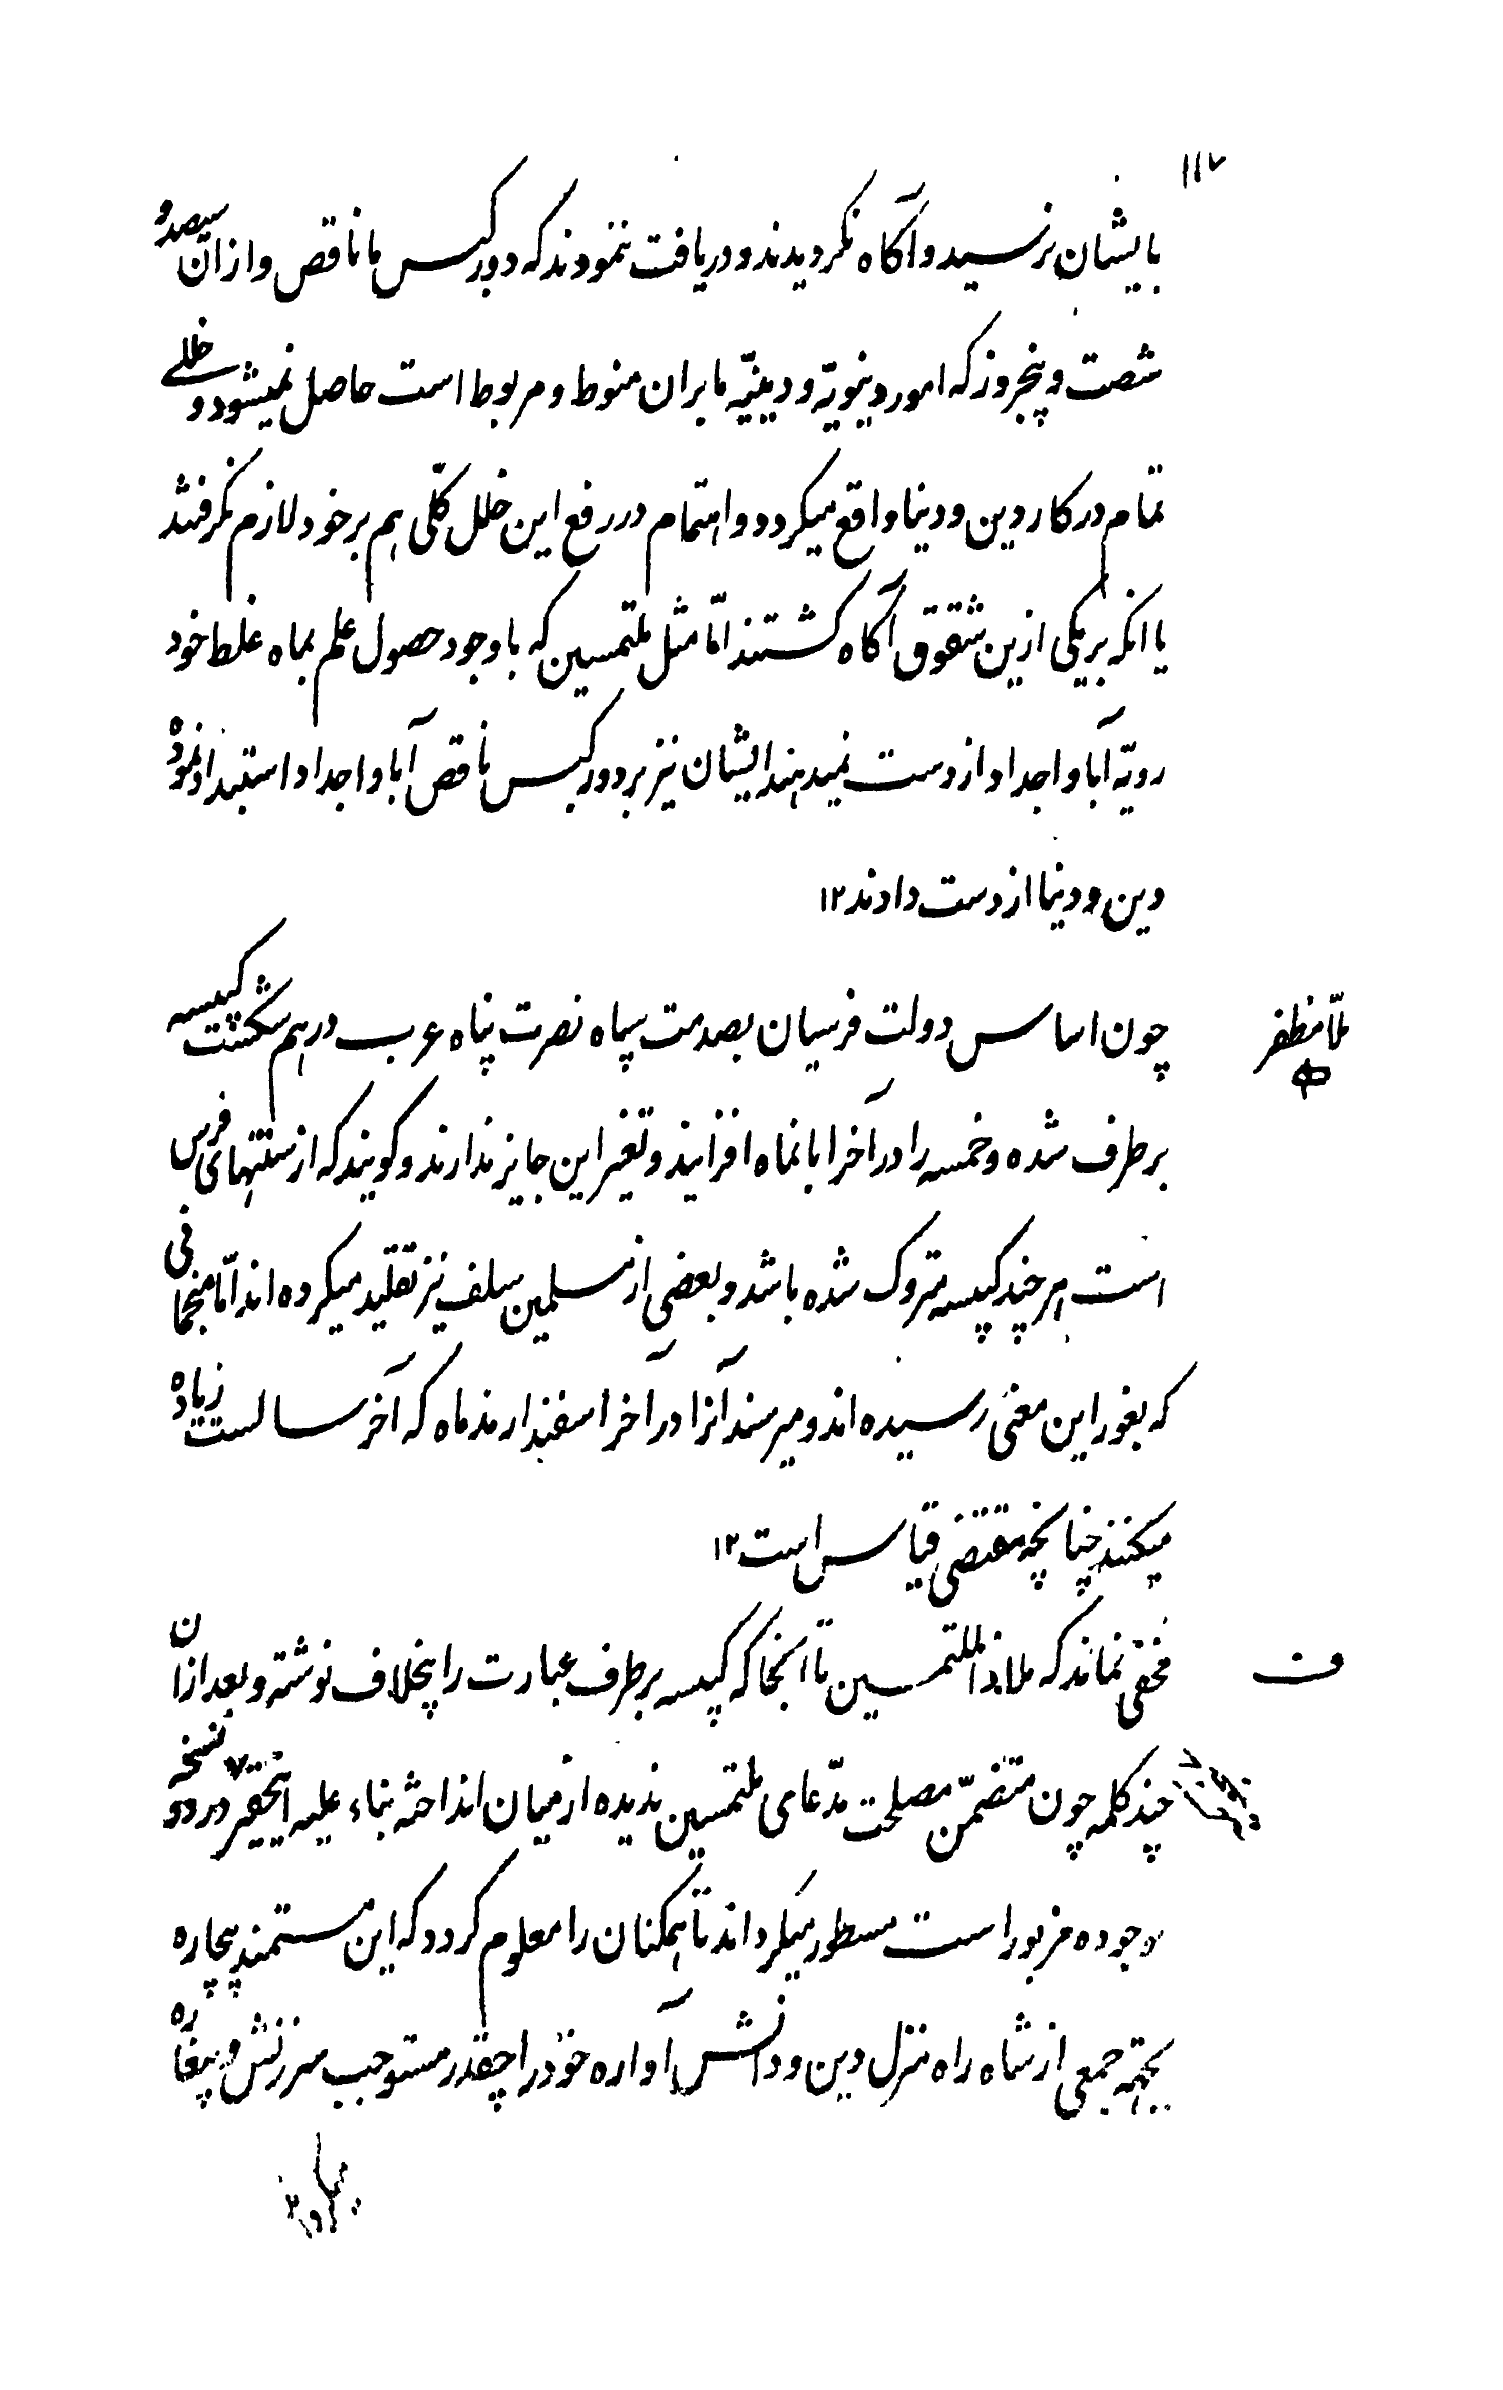 ۱۱۷
بایشان نرسید و آگاه نگردیدند و دریافت ننمودند که دور کبس ما ناقص و ازان سیصد و
شصت و پنجروز که امور دنیویّه و دینیّه ما بران منوط و مربوط است حاصل نمیشود و خللی
تمام در کار دین و دنیا واقع میگردد و اهتمام در رفع این خلل کلّی هم بر خود لازم نگرفتند
یا انکه بر یکی ازین شقوق آگاه گشتند امّا مثل ملتمسین که با وجود حصول علم بماه غلط خود
رویّه آبا و اجداد از دست نمیدهند ایشان نیز بر دور کبس ناقص آبا و اجداد استبداد نموده
دین و دنیا از دست دادند ۱۲
ملّا مظفر
چون اساس دولت فرسیان بصدمت سپاه نصرت پناه عرب درهم شکست کپیسه
برطرف شده و خمسه را در آخر ابانماه افزایند و تغیر این جایز ندارند و گویند که از سنتهای فرس
است هر چند کپیسه متروک شده باشد و بعضی از مسلمین سلف نیز تقلید میکرده اند امّا منجمانی
که بغور این معنی رسیده اند و میرسند آنرا در آخر اسفندارمذماه که آخر سالست زیاده
میکنند چنانچه مقتضی قیاس است ۱۲
ف
مخفی نماند که ملاذ الملتمسین تا انجا که کپیسه برطرف عبارت را بخلاف نوشته و بعد ازان
چند کلمه چون متضمّن مصلحت مدّعای ملتمسین ندیده از میان انداخته بناء علیه اینحقیر در دو نسخه
موجوده مزبور است مسطور میگرداند تا همکنان را معلوم گردد که این مستمند بیچاره
بجهته جمعی از شاه راه منزل دین و دانش آواره خود را چقدر مستوجب سرزنش و پیغاره